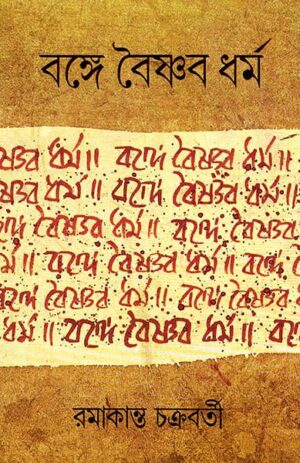 বঙ্গে বৈষ্ণব ধর্ম
বৈষ্ণব ধর্ম॥ বঙ্গে বৈষ্ণব ধর্ম॥
বৈষ্ণব ধর্ম॥ বঙ্গে বৈষ্ণব ধর্ম॥
বৈষ্ণব ধর্ম॥ বঙ্গে বৈষ্ণব ধর্ম॥
ধর্ম॥ বঙ্গে বৈষ্ণব ধর্ম॥ বঙ্গে
বঙ্গে বৈষ্ণব ধর্ম॥ বঙ্গে বৈষ্ণব
ধর্ম॥ বঙ্গে বৈষ্ণব ধর্ম॥
রমাকান্ত চক্রবর্তী